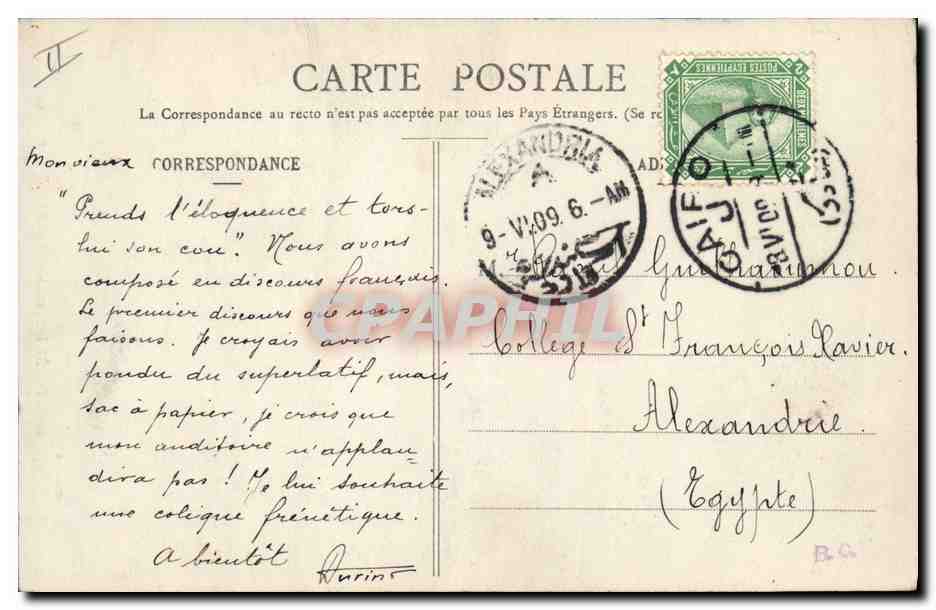 II
CARTE POSTALE
La Correspondance au recto n'est pas acceptée par tous les Pays Étrangers. (Se re
POSTES EGYPTIENNES
DEUX MILLIEMES
2
2
CORRESPONDANCE
AD
Mon vieux
"Prends l'éloquence et tors-
lui son cou". Nous avons
composé en discours français.
Le premier discours que nous
faisons. Je croyais avoir
pondu du superlatif, mais,
sac à papier, je crois que
mon auditoire n'applau-
dira pas ! Je lui souhaite
une colique frénétique.
A bientôt
ALEXANDRIA
A
9-VI.09.6.-AM
CAIRO
8 VI 09
Guilhaumou
College St François Xavier.
Alexandrie.
(Egypte)
B.G.
CPAPHIL